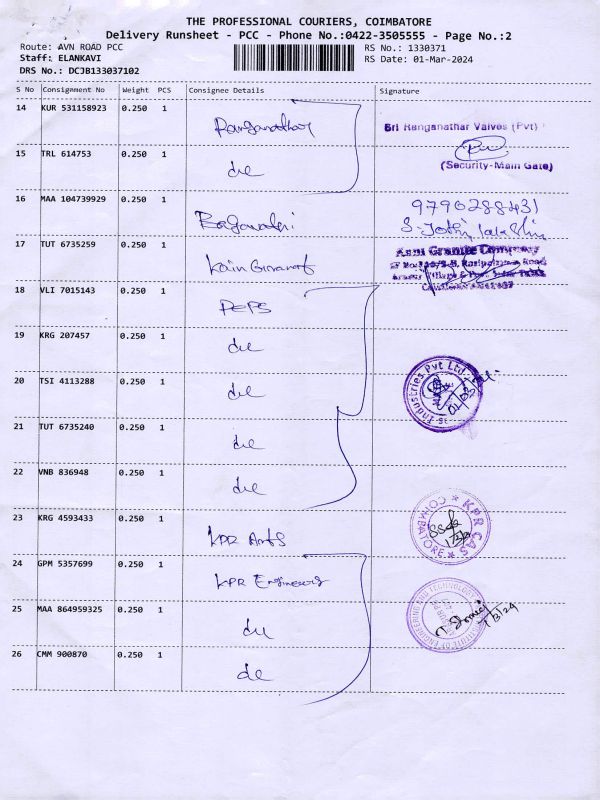 THE PROFESSIONAL COURIERS, COIMBATORE
Delivery Runsheet - PCC - Phone No.:0422-3505555 - Page No.:2
Route: AVN ROAD PCC
RS No.: 1330371
Staff: ELANKAVI
RS Date: 01-Mar-2024
DRS No.: DCJB133037102
S No Consignment No Weight PCS Consignee Details Signature
14 KUR 531158923 0.250 1 Ranganathar
Sri Ranganathar Valves (Pvt)
15 TRL 614753 0.250 1 do
(Security-Main Gate)
16 MAA 104739929 0.250 1 Bagavathi
9790288431
17 TUT 6735259 0.250 1
Asni Granite Company
18 VLI 7015143 0.250 1 PEPS
19 KRG 207457 0.250 1 do
20 TSI 4113288 0.250 1 do
Industries Pvt Ltd.
21 TUT 6735240 0.250 1 do
22 VNB 836948 0.250 1 do
23 KRG 4593433 0.250 1 KPR Arts
KPR CAS
COIMBATORE
24 GPM 5357699 0.250 1 KPR Engineers
25 MAA 864959325 0.250 1 do
INSTITUTE OF ENGINEERING AND TECHNOLOGY
1/3/24
26 CMM 900870 0.250 1 do